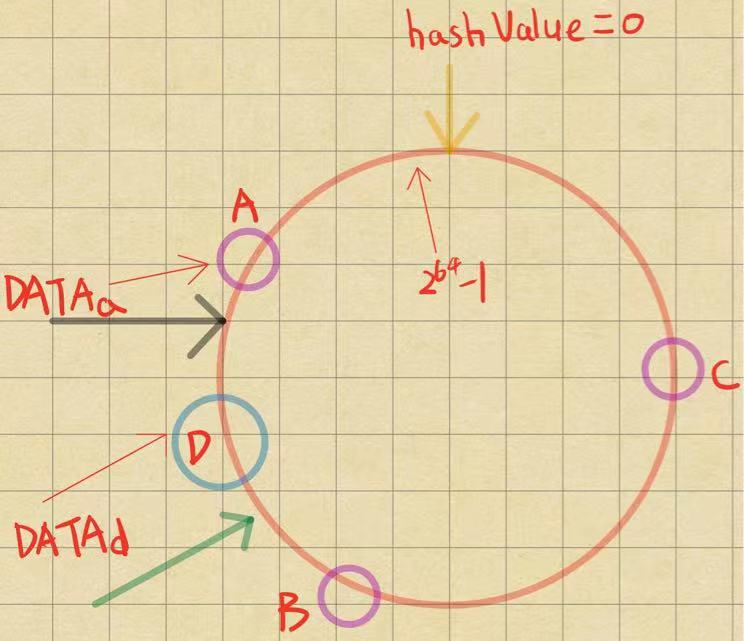 hashValue=0
A
2^64-1
DATAa
C
D
DATAd
B